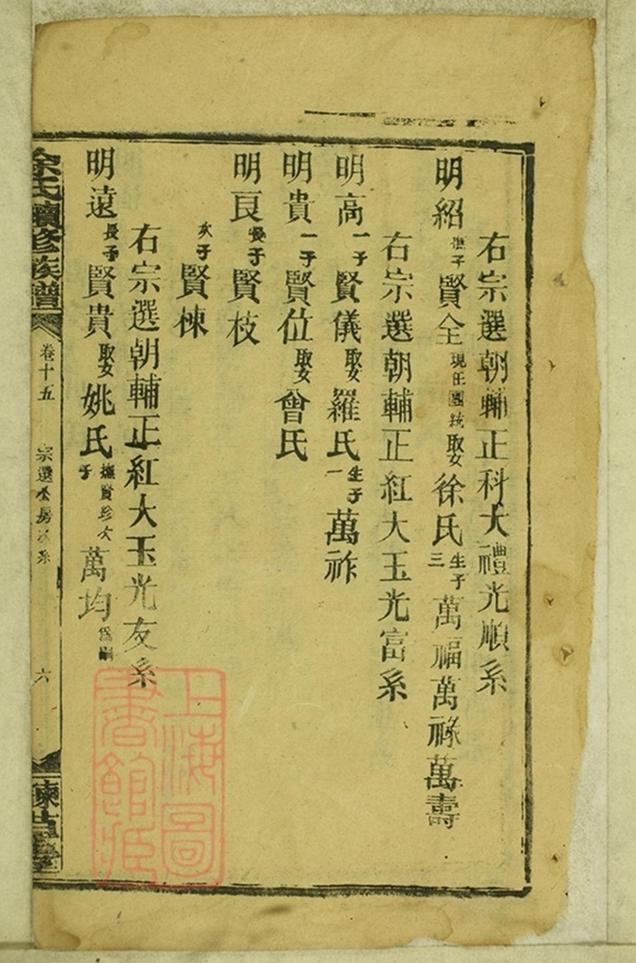 右宗選朝輔正科大禮光順系
明紹撫子賢全現任團統取女徐氏生子三萬福萬祿萬壽
右宗選朝輔正紅大玉光富系
明高一子賢儀取女羅氏生子一萬祚
明貴一子賢位取女曾氏
明良長子賢枝
次子賢棟
右宗選朝輔正紅大玉光友系
明遠長子賢貴取女姚氏撫賢珍次子萬均為嗣
余氏續修族譜
卷十五
宗選公房次系
六
上海圖書館藏